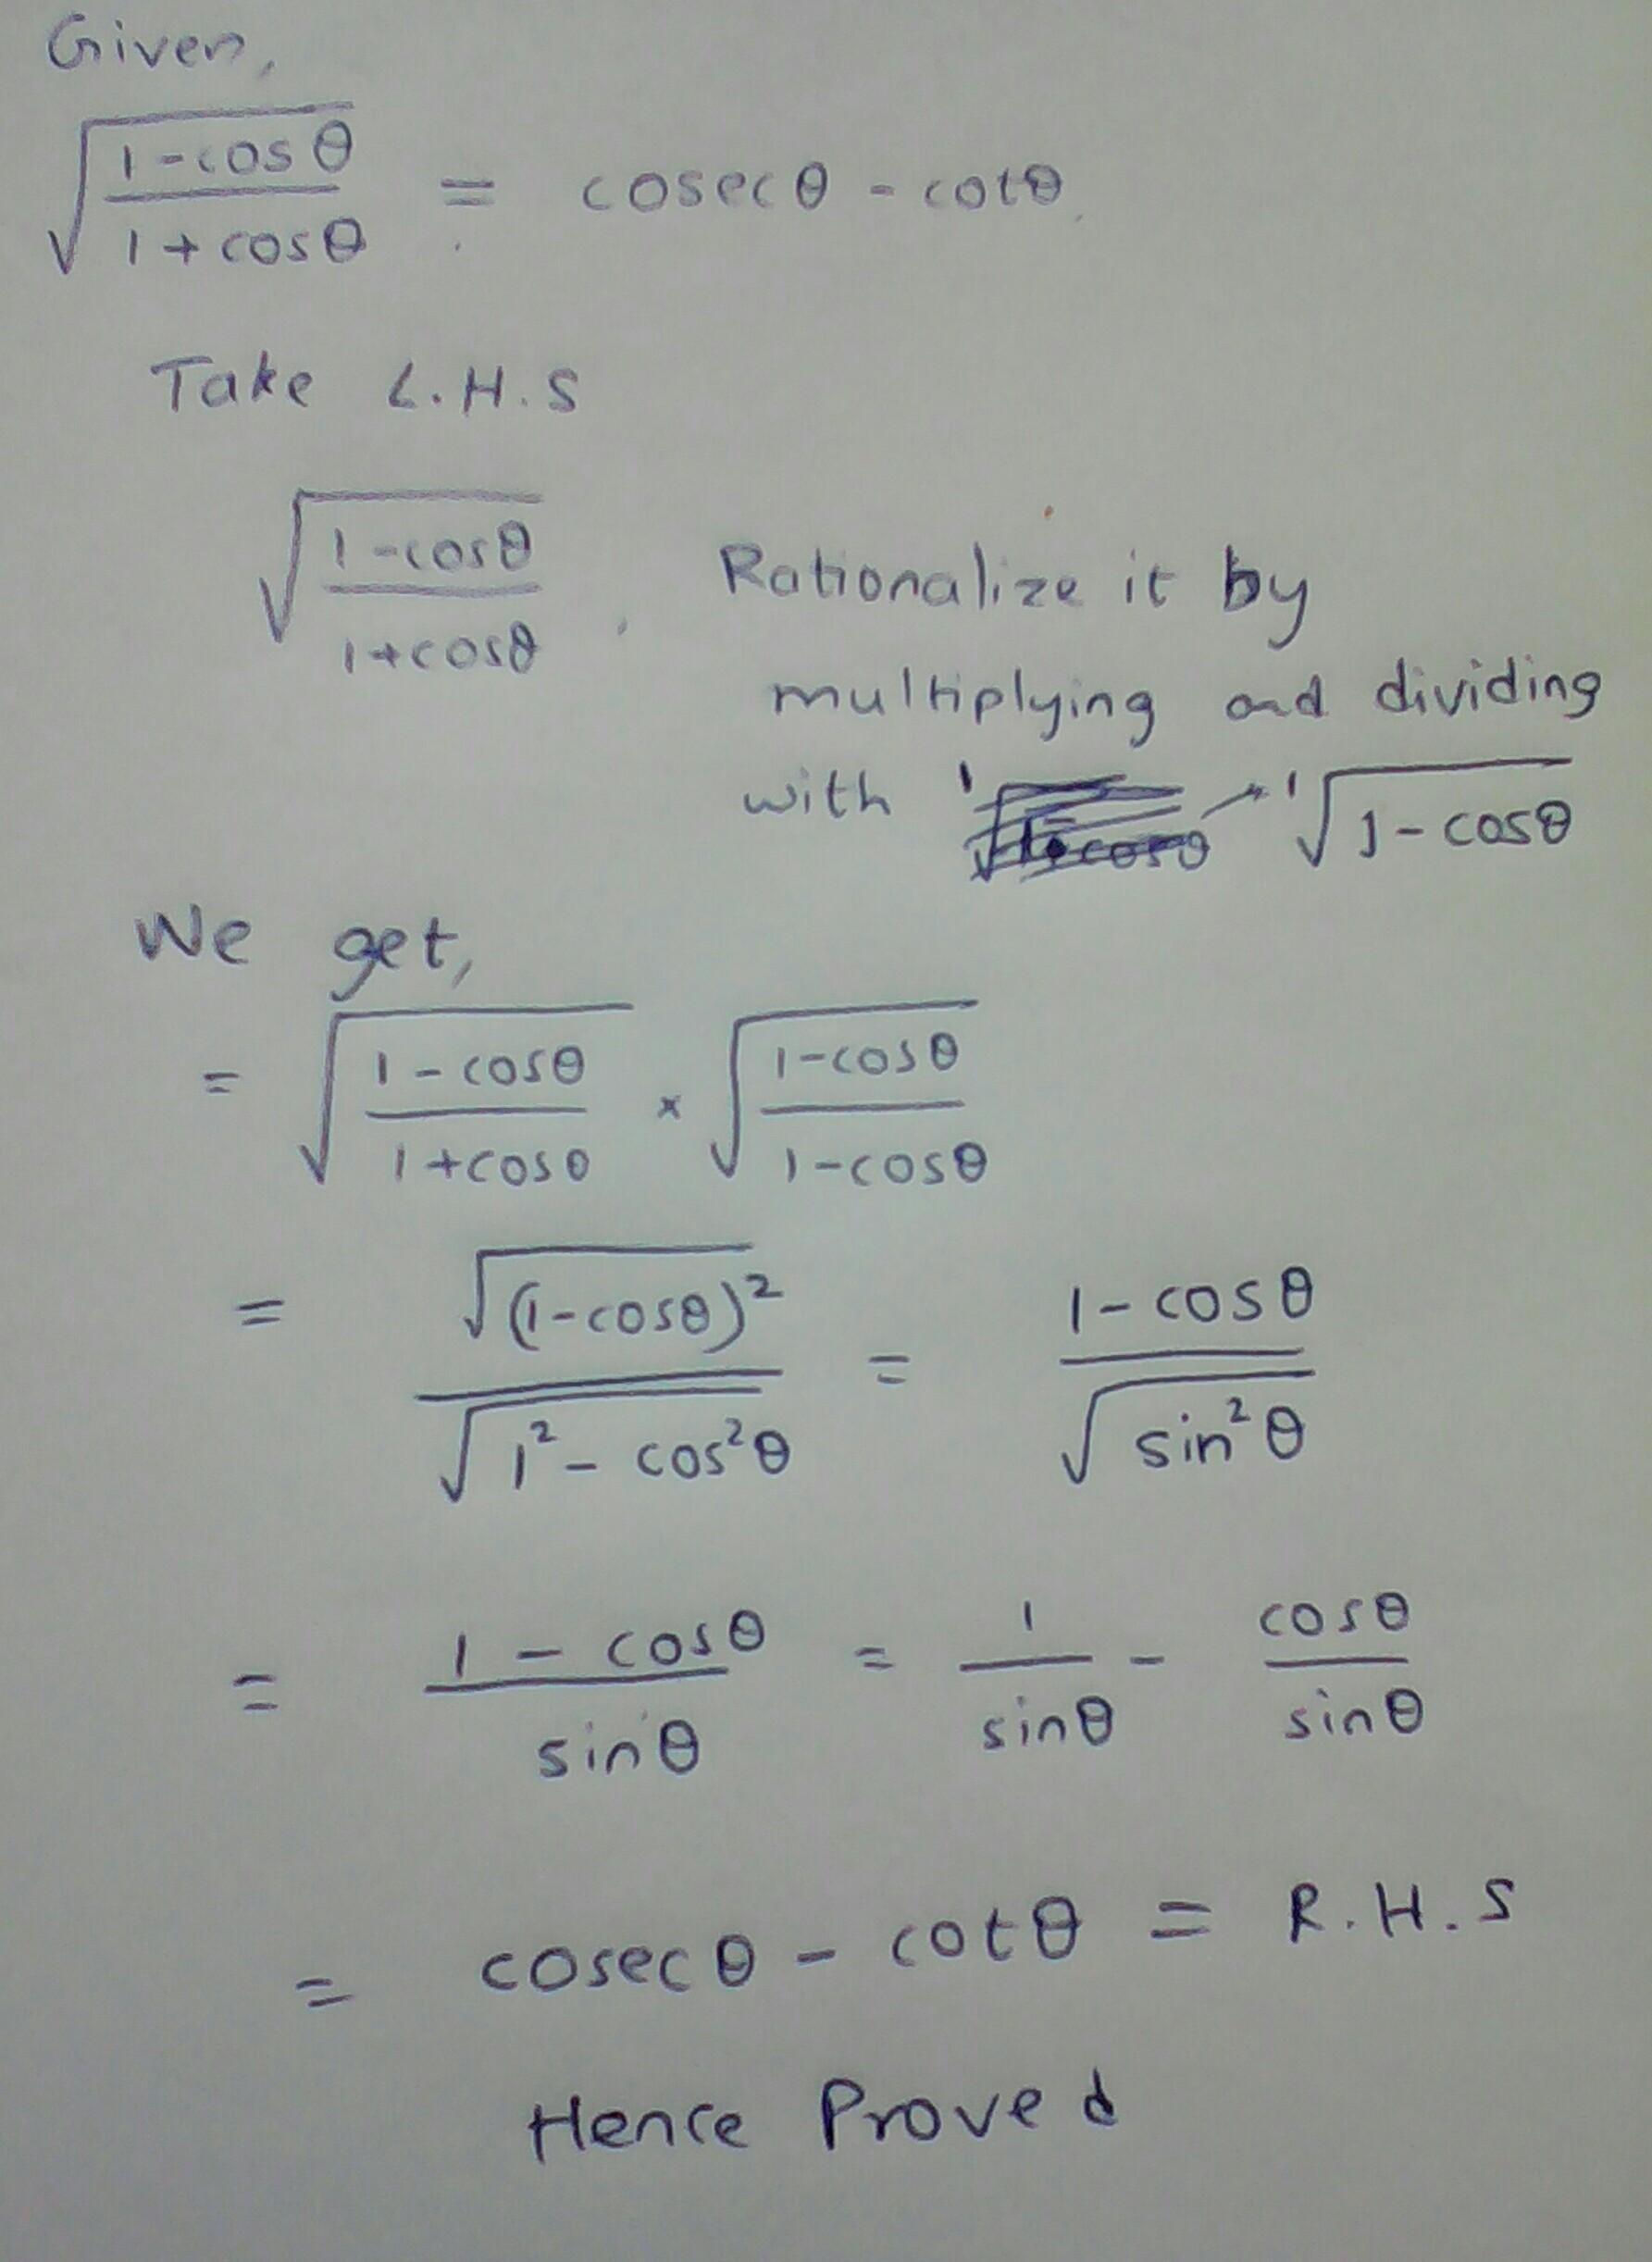 Given,
√((1-cosθ)/(1+cosθ)) = cosecθ - cotθ
Take L.H.S
√((1-cosθ)/(1+cosθ)) . Rationalize it by
multiplying and dividing
with '√(1-cosθ)
We get,
= √((1-cosθ)/(1+cosθ)) × √((1-cosθ)/(1-cosθ))
= √(1-cosθ)² / √(1²-cos²θ) = (1-cosθ)/√(sin²θ)
= (1-cosθ)/sinθ = 1/sinθ - cosθ/sinθ
= cosecθ - cotθ = R.H.S
Hence Proved